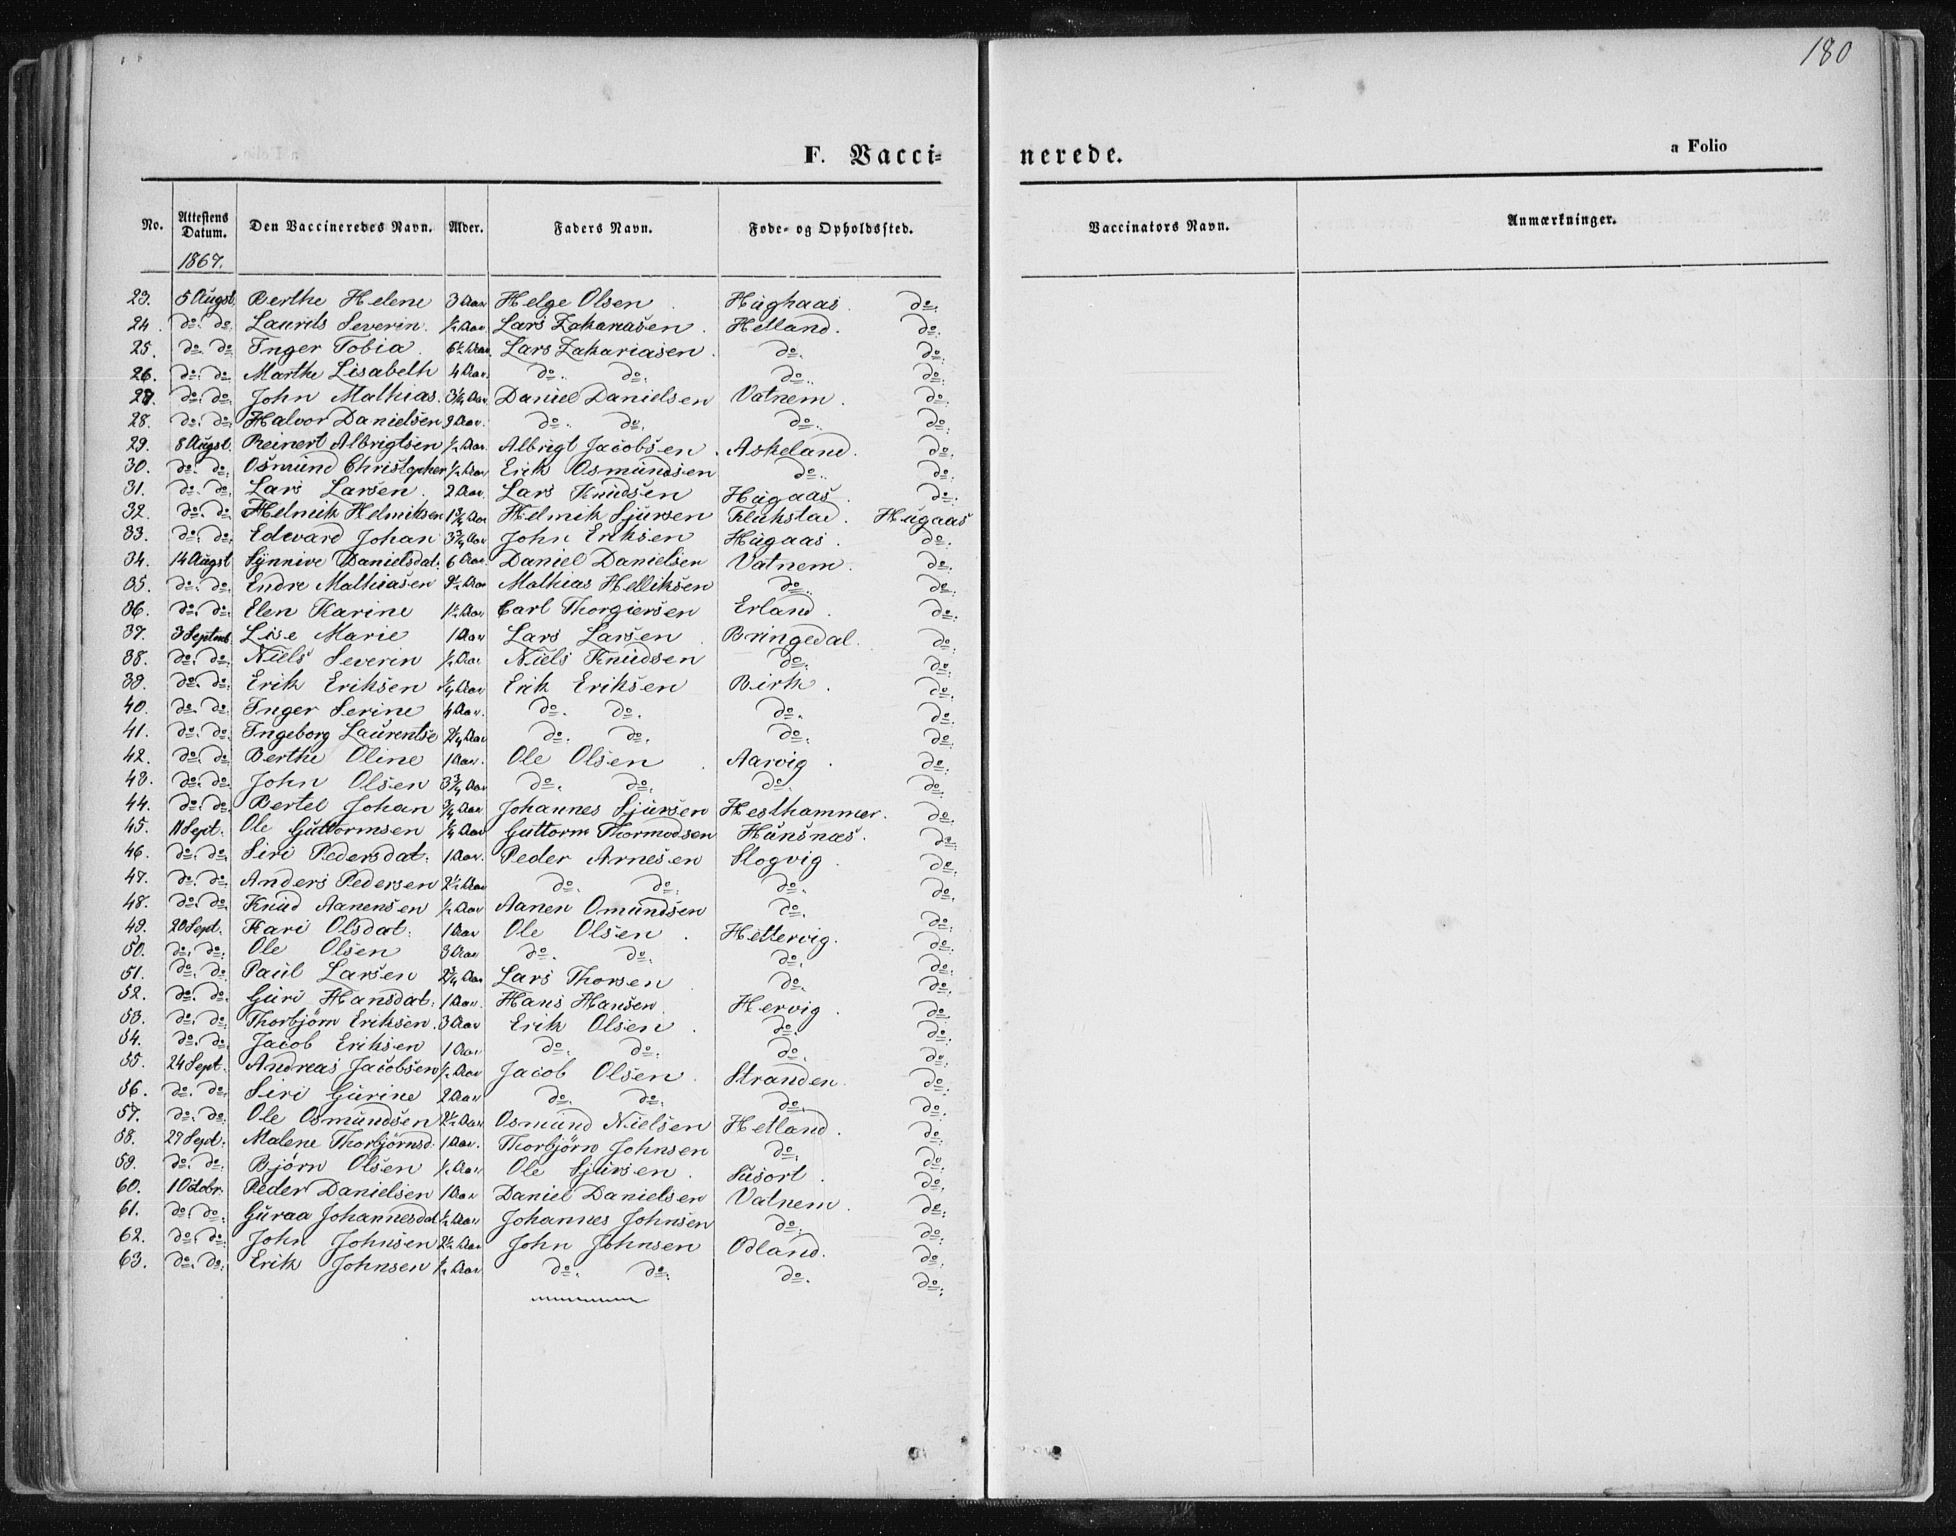 180
F. Vacci- nerede.
a Folio
No. Attestens Datum. Den Vaccineredes Navn. Alder. Faders Navn. Føde- og Opholdssted. Vaccinators Navn. Anmærkninger.
1867.
23. 5 Augst. Berthe Helene 3 Aar Helge Olsen Hüghaas do.
24. do. do. Laurits Severin. 1/2 Aar Lars Zakariasen. Hetland. do.
25. do. do. Inger Tobia. 6 1/2 Aar Lars Zakariasen. do. do.
26. do. do. Marthe Lisabeth 4 Aar. do. do. do. do.
27. do. do. John Mathias. 3/4 Aar Daniel Danielsen Vatnem. do.
28. do. do. Halvor Danielsen 9 Aar. do. do. do. do.
29. 8 Augst. Reinert Albrigtsen 1/2 Aar Albrigt Jacobsen. Askeland. do.
30. do. do. Osmünd Christopher 1/2 Aar Erik Osmündsen do. do.
31. do. do. Lars Larsen. 2 Aar. Lars Knüdsen Hügaas. do.
32. do. do. Helmik Helmiksen 1 3/4 Aar Helmik Sjürsen Flukstad. Hügaas
33. do. do. Edvard Johan 3 3/4 Aar John Eriksen Hügaas. do.
34. 14 Augst Synnive Danielsdat. 6 Aar. Daniel Danielsen Vatnem. do.
35. do. do. Endre Mathiasen Aar Mathias Helliksen do. do.
36. do. do. Elen Karine 1 1/2 Aar Carl Thorgiersen Erland. do.
37. 3 Septmb. Lise Marie 1 Aar Lars Larsen Bringedal. do.
38. do. do. Niels Severin 1/2 Aar Niels Knüdsen do. do.
39. do. do. Erik Eriksen 1/4 Aar Erik Eriksen Birk. do.
40. do. do. Inger Serine 4 Aar. do. do. do. do.
41. do. do. Ingeborg Laürentse 2 1/4 Aar do. do. do. do.
42. do. do. Berthe Oline 1 Aar. Ole Olsen. Aarvig. do.
43. do. do. John Olsen 3 3/4 Aar do. do. do. do.
44. do. do. Bertel Johan 3/4 Aar Johannes Sjürsen Hesthammer. do.
45. 11 Sept. Ole Güttormsen 1/4 Aar Güttorm Thormodsen Hünsnæs. do.
46. do. do. Siri Pedersdat. 1 Aar. Peder Arnesen Slogvig. do.
47. do. do. Anders Pedersen 2 1/2 Aar do. do. do. do.
48. do. do. Knüd Aanensen 1/2 Aar Aanen Omündsen do. do.
49. 20 Sept. Kari Olsdat. 1 Aar Ole Olsen. Hettervig. do.
50. do. do. Ole Olsen 3 Aar do. do. do. do.
51. do. do. Paül Larsen 2 3/4 Aar Lars Thorsen do. do.
52. do. do. Güri Hansdat. 1 Aar. Hans Hansen Hervig. do.
53. do. do. Thorbjörn Eriksen. 3 Aar Erik Olsen. do. do.
54. do. do. Jacob Eriksen 1 Aar do. do. do. do.
55. 24 Sept. Andreas Jacobsen 1/2 Aar Jacob Olsen. Stranden. do.
56. do. do. Siri Gürine 2 Aar do. do. do. do.
57. do. do. Ole Osmündsen 2 1/2 Aar Osmünd Nielsen Hetland. do.
58. 27 Sept. Malene Thorbjörnsd. 1 Aar. Thorbjörn Johnsen do. do.
59. do. do. Björn Olsen 1/2 Aar Ole Sjürsen. Süsort. do.
60. 1 Octobr. Peder Danielsen 1 Aar Daniel Danielsen Vatnem. do.
61. do. do. Güraa Johannesdat 1/2 Aar Johannes Johnsen do. do.
62. do. do. John Johnsen 2 1/2 Aar John Johnsen Odland. do.
63. do. do. Erik Johnsen 1/2 Aar do. do. do. do.